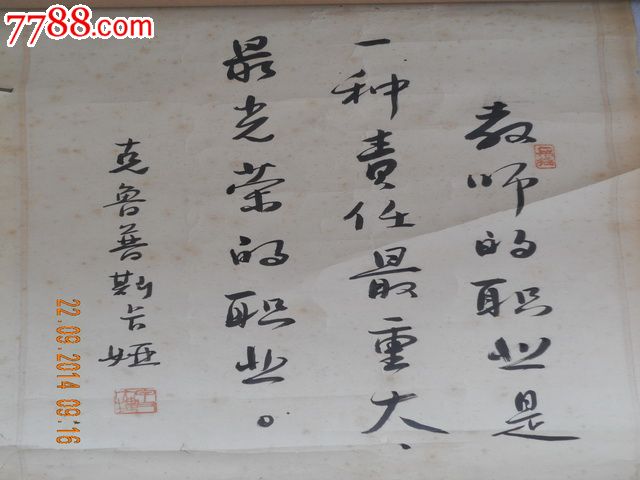 7788.com
中国收藏热线
教师的职业是
一种责任最重大、
最光荣的职业。
克鲁普斯卡娅
22.09.2014 09:16